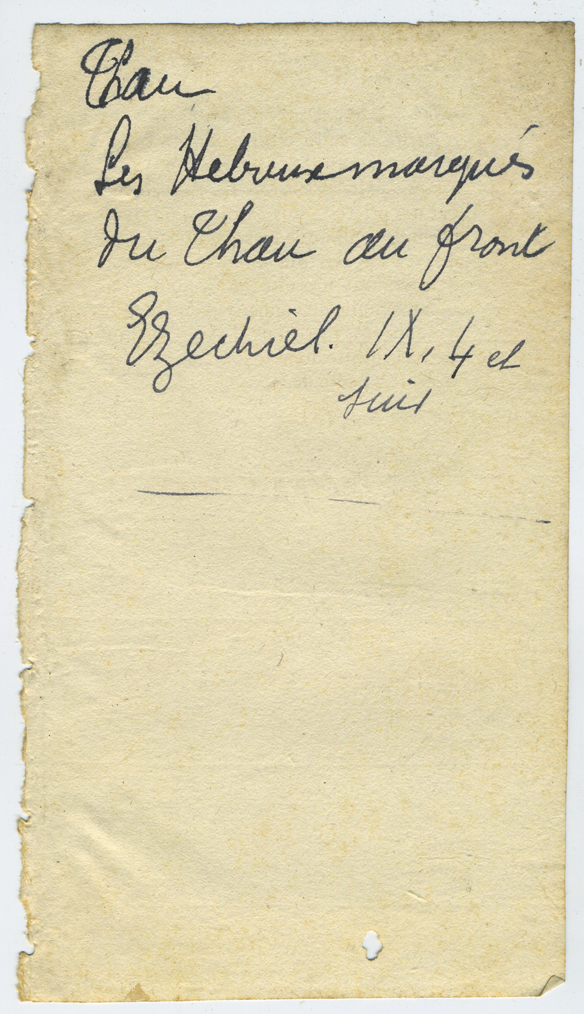 Thau
Les Hebreux marqués
du Thau au front
Ezechiel. IX, 4 et
suiv